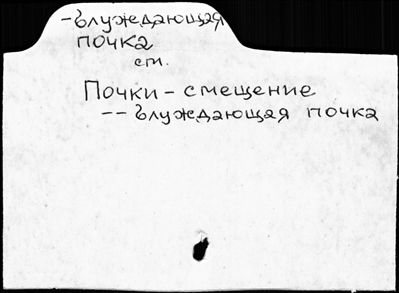 -Блуждающая
почка
см.
Почки - смещение
-- блуждающая почка